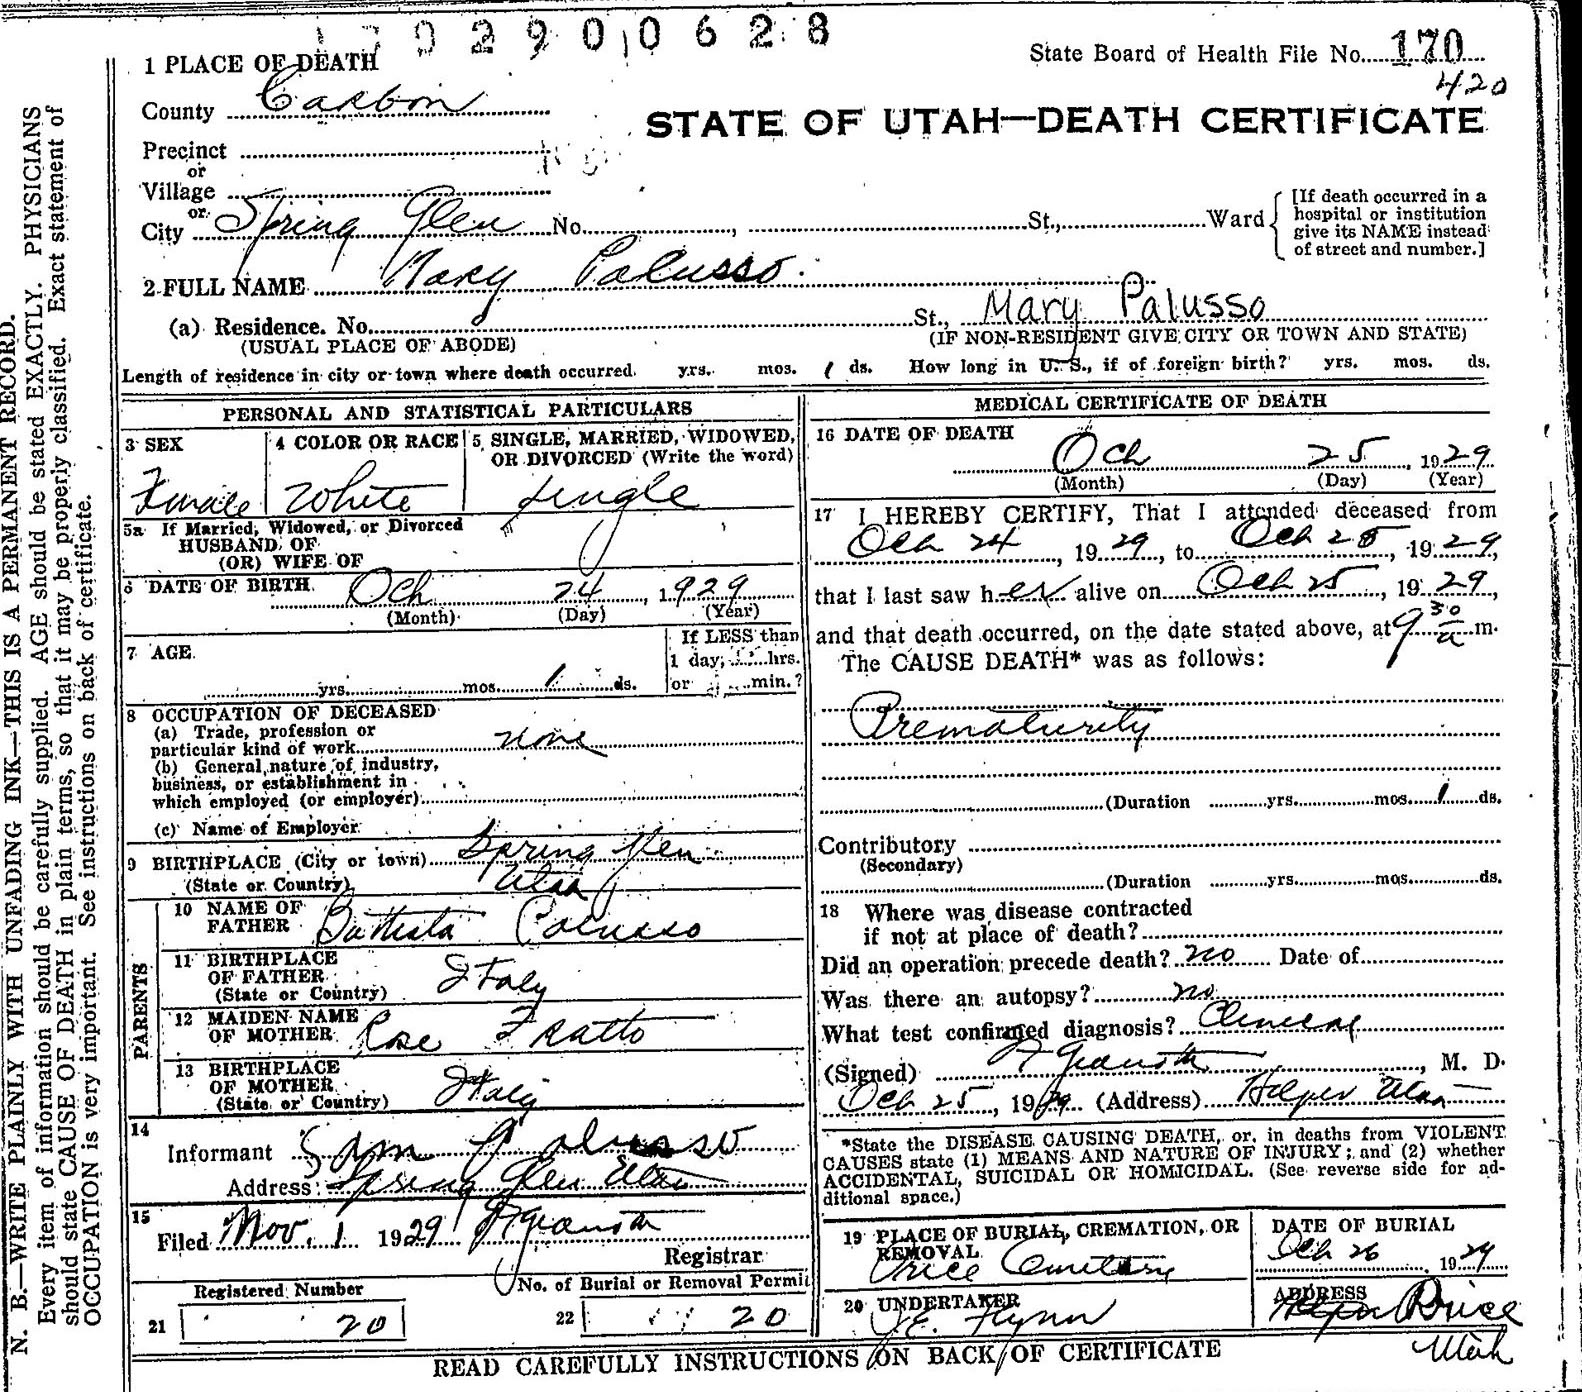 2900628
State Board of Health File No. 170
420
1 PLACE OF DEATH
County Carbon
STATE OF UTAH—DEATH CERTIFICATE
Precinct
or
Village
or
City Spring Glen No. , St., Ward
[If death occurred in a
hospital or institution
give its NAME instead
of street and number.]
2 FULL NAME Mary Palusso
(a) Residence. No. St., Mary Palusso
(USUAL PLACE OF ABODE) (IF NON-RESIDENT GIVE CITY OR TOWN AND STATE)
Length of residence in city or town where death occurred. yrs. mos. 1 ds. How long in U. S., if of foreign birth? yrs. mos. ds.
PERSONAL AND STATISTICAL PARTICULARS
3 SEX
Female
4 COLOR OR RACE
White
5 SINGLE, MARRIED, WIDOWED,
OR DIVORCED (Write the word)
Single
5a If Married, Widowed, or Divorced
HUSBAND OF
(OR) WIFE OF
6 DATE OF BIRTH Oct 24, 1929
(Month) (Day) (Year)
7 AGE
yrs. mos. 1 ds.
If LESS than
1 day, hrs.
or min.?
8 OCCUPATION OF DECEASED
(a) Trade, profession or
particular kind of work none
(b) General nature of industry,
business, or establishment in
which employed (or employer)
(c) Name of Employer
9 BIRTHPLACE (City or town) Spring Glen
(State or Country) Utah
PARENTS
10 NAME OF
FATHER Battista Palusso
11 BIRTHPLACE
OF FATHER
(State or Country) Italy
12 MAIDEN NAME
OF MOTHER Rose Fratto
13 BIRTHPLACE
OF MOTHER
(State or Country) Italy
14
Informant Sam Palusso
Address Spring Glen Utah
15
Filed Nov. 1 1929
Registrar
Registered Number
21 20
No. of Burial or Removal Permit
22 20
MEDICAL CERTIFICATE OF DEATH
16 DATE OF DEATH
Oct 25, 1929
(Month) (Day) (Year)
17 I HEREBY CERTIFY, That I attended deceased from
Oct 24, 1929, to Oct 25, 1929,
that I last saw her alive on Oct 25, 1929,
and that death occurred, on the date stated above, at 9 30 a m.
The CAUSE DEATH* was as follows:
Prematurity
(Duration yrs. mos. 1 ds.
Contributory
(Secondary)
(Duration yrs. mos. ds.
18 Where was disease contracted
if not at place of death?
Did an operation precede death? no Date of
Was there an autopsy? no
What test confirmed diagnosis? Clinical
(Signed) , M. D.
Oct 25, 1929 (Address) Helper Utah
*State the DISEASE CAUSING DEATH, or, in deaths from VIOLENT
CAUSES state (1) MEANS AND NATURE OF INJURY; and (2) whether
ACCIDENTAL, SUICIDAL OR HOMICIDAL. (See reverse side for ad-
ditional space.)
19 PLACE OF BURIAL, CREMATION, OR
REMOVAL
Price Cemetery
DATE OF BURIAL
Oct 26, 1929
20 UNDERTAKER
J.E. Flynn
ADDRESS
Price
Utah
READ CAREFULLY INSTRUCTIONS ON BACK OF CERTIFICATE
N. B.—WRITE PLAINLY WITH UNFADING INK—THIS IS A PERMANENT RECORD.
Every item of information should be carefully supplied. AGE should be stated EXACTLY. PHYSICIANS
should state CAUSE OF DEATH in plain terms, so that it may be properly classified. Exact statement of
OCCUPATION is very important. See instructions on back of certificate.